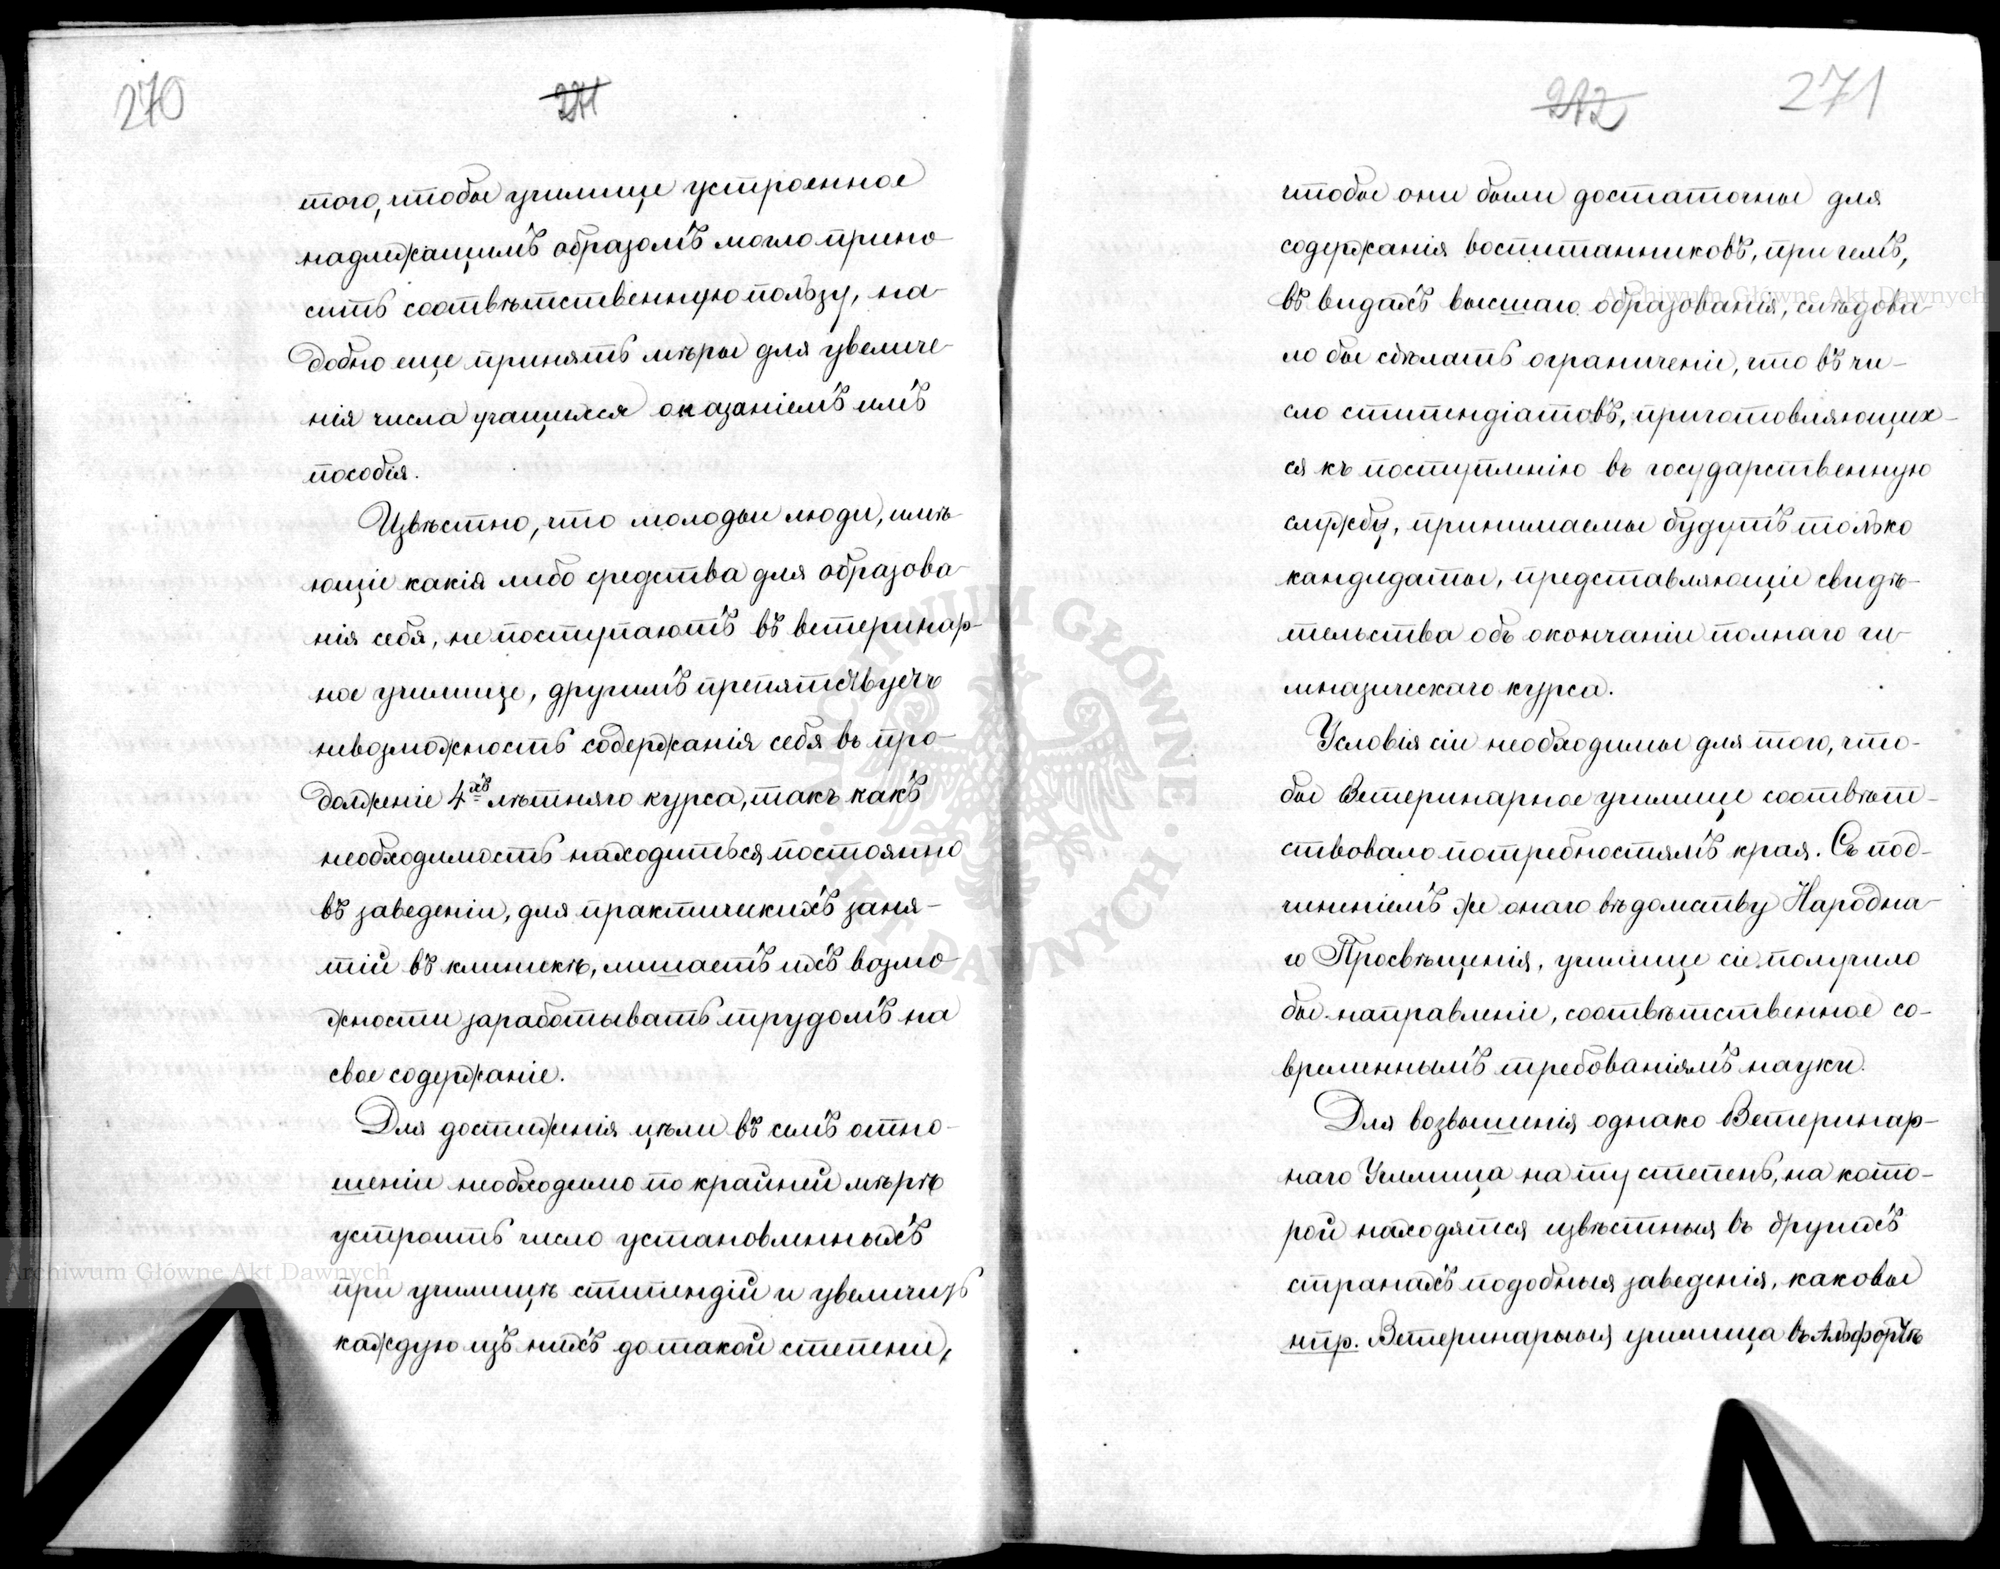 270
271
того, чтобы училище устроенное
надлежащимъ образомъ могло прино-
сить соотвѣтственную пользу, на-
добно еще принять мѣры для увеличе-
нія числа учащихся оказаніемъ имъ
пособія.
Извѣстно, что молодыи люди, имѣ-
ющіе какія либо средства для образова-
нія себя, не поступаютъ въ ветеринар-
ное училище, другимъ препятствуетъ
невозможность содержанія себя въ про-
долженіе 4хъ лѣтняго курса, такъ какъ
необходимость находиться постоянно
въ заведеніи, для практическихъ заня-
тій въ клиникѣ, лишаетъ ихъ возмо-
жности заработывать трудомъ на
свое содержаніе.
Для достиженія цѣли въ семъ отно-
шеніи необходимо по крайней мѣрѣ
устроить число установленныхъ
при училищѣ стипендій и увеличить
каждую изъ нихъ до такой степени,
272 271
чтобы они были достаточны для
содержанія воспитанниковъ, при чемъ,
въ видахъ высшаго образованія, слѣдова-
ло бы сдѣлать ограниченіе, что въ чи-
сло стипендіатовъ, приготовляющих-
ся къ поступленію въ государственную
службу, принимаемы будутъ только
кандидаты, представляющіе свидѣ-
тельства объ окончаніи полнаго ги-
мназическаго курса.
Условія сіи необходимы для того, что-
бы Ветеринарное училище соотвѣт-
ствовало потребностямъ края. Съ под-
чиненіемъ же онаго вѣдомству Народна-
го Просвѣщенія, училище сіе получило
бы направленіе, соотвѣтственное со-
временнымъ требованіямъ науки.
Для возвышенія однако Ветеринар-
наго Училища на ту степень, на кото-
рой находятся извѣстныя въ другихъ
странахъ подобныя заведенія, каковы
нпр. Ветеринарныя училища въ Альфортѣ
Archiwum Główne Akt Dawnych
Archiwum Główne Akt Dawnych
ARCHIWUM GŁÓWNE · AKT DAWNYCH ·